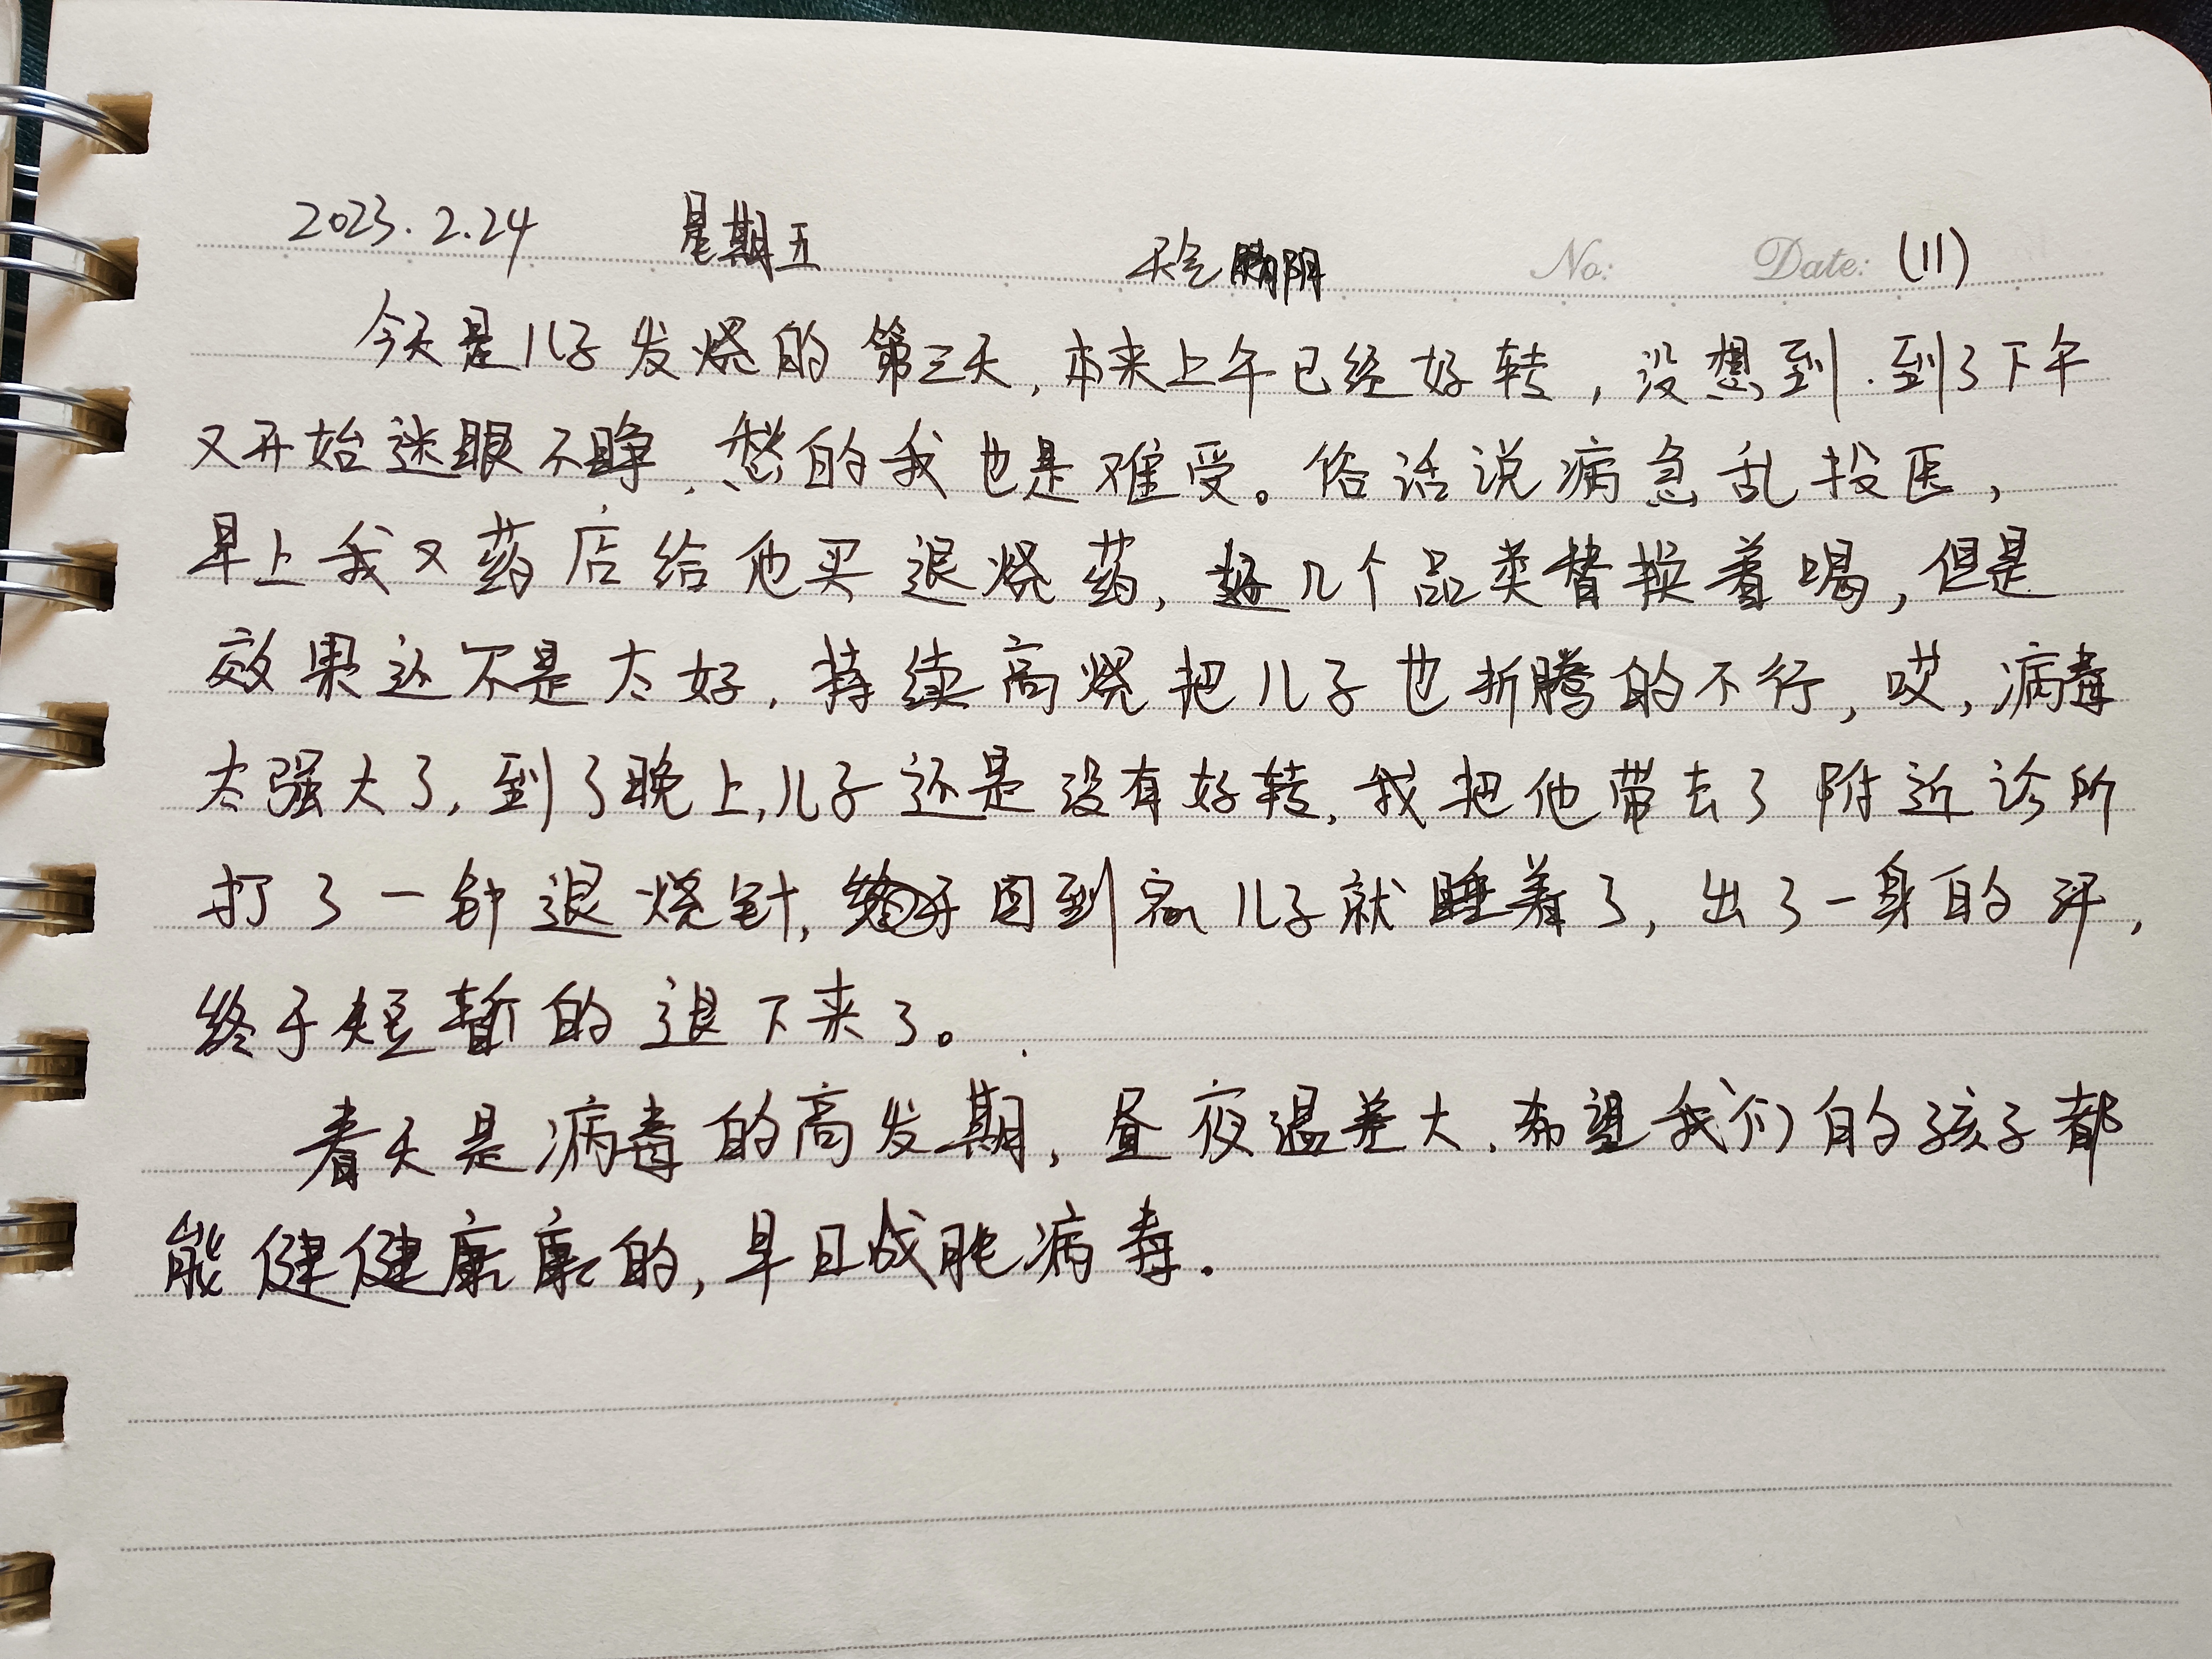 2023.2.24 星期五 天气 阴 No: Date: (11)
今天是儿子发烧的第三天,本来上午已经好转,没想到.到了下午
又开始迷眼不睁,愁的我也是难受。俗话说病急乱投医,
早上我又药店给他买退烧药,好几个品类替换着喝,但是
效果还不是太好,持续高烧把儿子也折腾的不行,哎,病毒
太强大了,到了晚上,儿子还是没有好转,我把他带去了附近诊所
打了一钟退烧针,回到家儿子就睡着了,出了一身的汗,
终于短暂的退下来了。
春天是病毒的高发期,昼夜温差大,希望我们的孩子都
能健健康康的,早日战胜病毒.